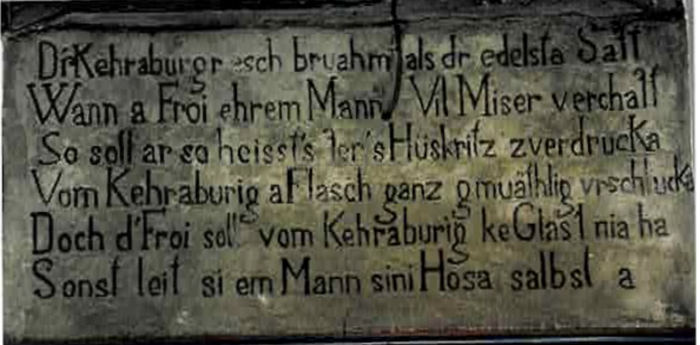 Dr Kehraburgr esch bruahmt als dr edelsta Saft
Wann a Froi ehrem Mann Vil Miser verchaft
So soll ar so heisst's fer's Hüskritz zverdrucka
Vom Kehraburig a Flasch ganz gmuäthlig vrschlucka
Doch d'Froi soll vom Kehraburig ke Glasl nia ha
Sonst leit si em Mann sini Hosa salbst a